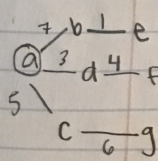 7 b 1 e
a 3 d 4 f
5
c 6 g